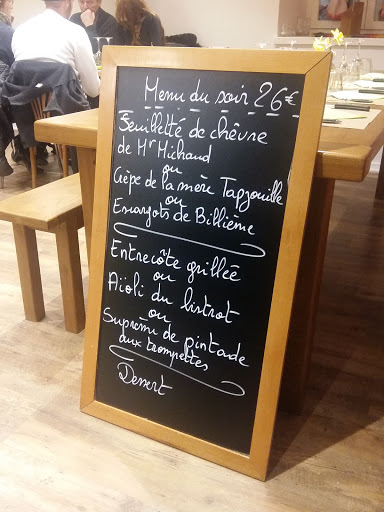 Menu du soir 26€
Feuilleté de chèvre
de Mr Michaud
ou
Crêpe de la mère Tapjouille
ou
Escargots de Billième
Entrecôte grillée
ou
Aïoli du bistrot
ou
Suprême de pintade
aux trompettes
Dessert